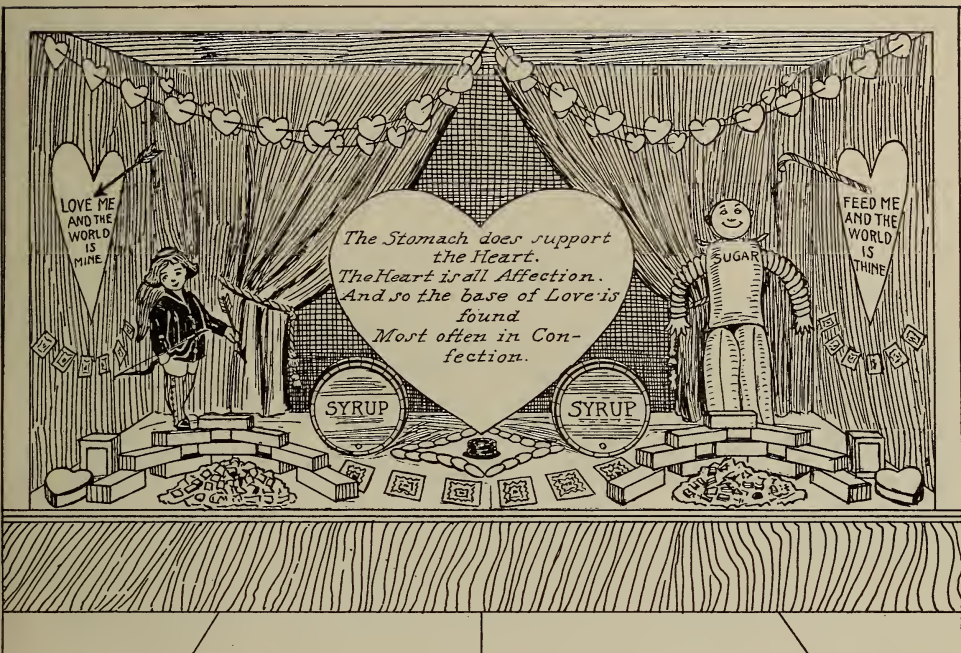 LOVE ME
AND THE
WORLD
IS
MINE
The Stomach does support
the Heart.
The Heart is all Affection.
And so the base of Love is
found
Most often in Con-
fection.
SUGAR
FEED ME
AND THE
WORLD
IS
THINE
SYRUP
SYRUP